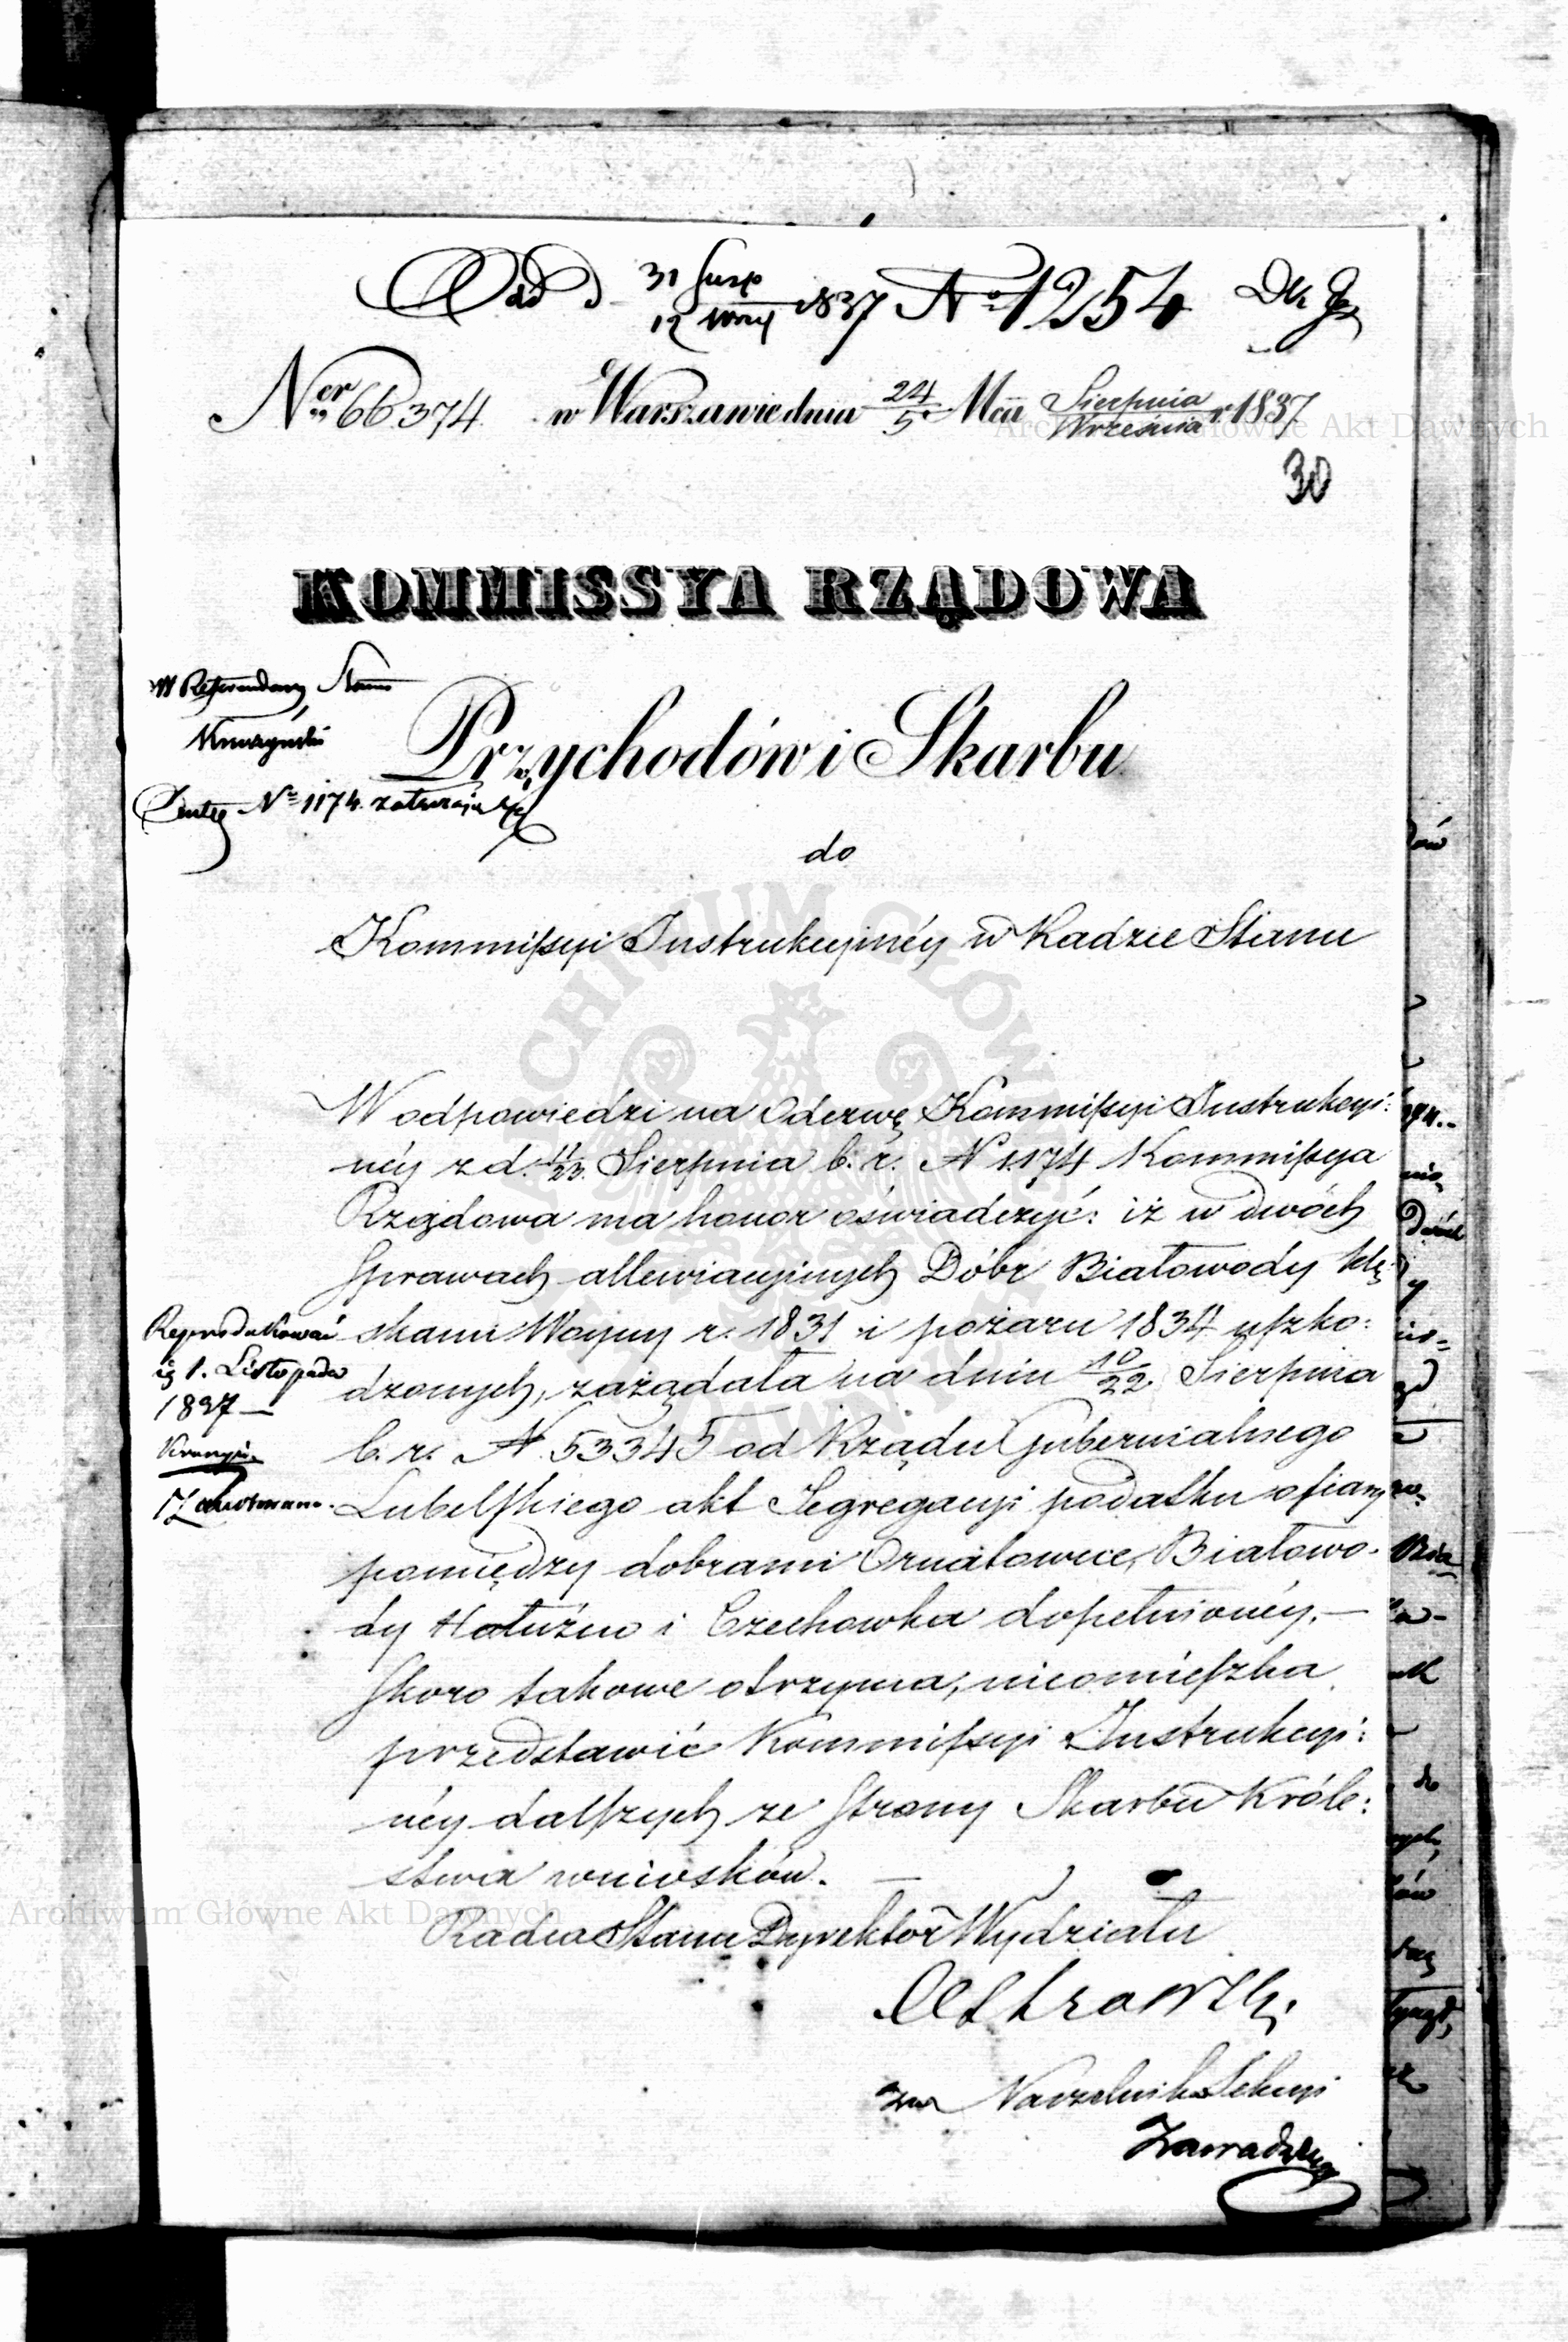 Odd d 31 Sierp / 12 Wrzes 1837 Nº 1254
Ner 66374. w Warszawie dnia 24/5 Mca Sierpnia/Września r. 1837
30
KOMMISSYA RZĄDOWA
W Referendarz Stanu
Przychodów i Skarbu
Nº 1174.
do
Kommissyi Instrukcyinéy w Radzie Stanu
W odpowiedzi na Odezwę Kommissyi Instrukcyi:
néy z d. 11/23. Sierpnia b. r. N 1174 Kommissya
Rządowa ma honor oświadczyć: iż w dwóch
Sprawach allewiacyinych Dóbr Białowody klę:
skami Woyny r. 1831 i pożaru 1834 uszko:
dzonych, zażądała na dniu 10/22 Sierpnia
b. r. N. 53345 od Rządu Gubernialnego
Lubelskiego akt Segregacyi podatku ofiary
pomiędzy dobrami Ornatowice, Białowo-
dy Hołużno i Czechowka dopełnionéy. —
Skoro takowe otrzyma, nieomieszka
przedstawić Kommissyi Instrukcyi:
néy dalszych ze strony Skarbu Króle:
stwa wniosków. —
Reprodukować
1. Listopada
1837 —
Radca Stanu Dyrektor Wydziału
za Naczelnika Sekcyi
Archiwum Główne Akt Dawnych
Archiwum Główne Akt Dawnych
ARCHIWUM GŁÓWNE AKT DAWNYCH